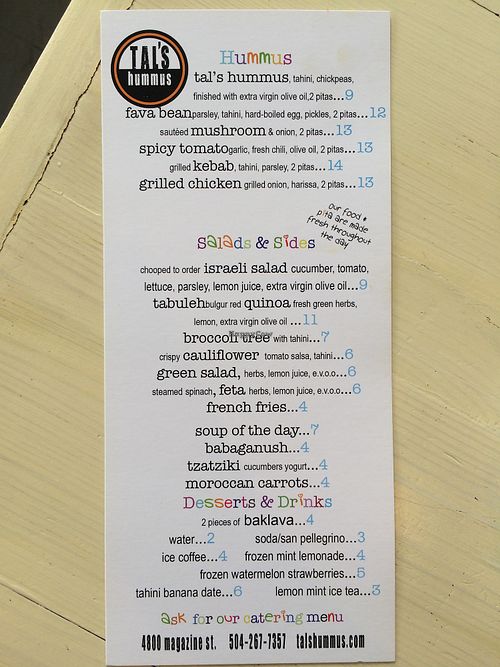 TAL'S
hummus
Hummus
tal's hummus, tahini, chickpeas,
finished with extra virgin olive oil,2 pitas...9
fava beanparsley, tahini, hard-boiled egg, pickles, 2 pitas...12
sautéed mushroom & onion, 2 pitas...13
spicy tomatogarlic, fresh chili, olive oil, 2 pitas...13
grilled kebab, tahini, parsley, 2 pitas...14
grilled chicken grilled onion, harissa, 2 pitas...13
Our food &
pita are made
fresh throughout
the day
Salads & Sides
chooped to order israeli salad cucumber, tomato,
lettuce, parsley, lemon juice, extra virgin olive oil...9
tabulehbulgur red quinoa fresh green herbs,
lemon, extra virgin olive oil ...11
broccoli tree with tahini...7
crispy cauliflower tomato salsa, tahini...6
green salad, herbs, lemon juice, e.v.o.o...6
steamed spinach, feta herbs, lemon juice, e.v.o.o...6
french fries...4
soup of the day...7
babaganush...4
tzatziki cucumbers yogurt...4
moroccan carrots...4
Desserts & Drinks
2 pieces of baklava...4
water...2 soda/san pellegrino...3
ice coffee...4 frozen mint lemonade...4
frozen watermelon strawberries...5
tahini banana date...6 lemon mint ice tea...3
ask for our catering menu
4800 magazine st. 504-267-7357 talshummus.com